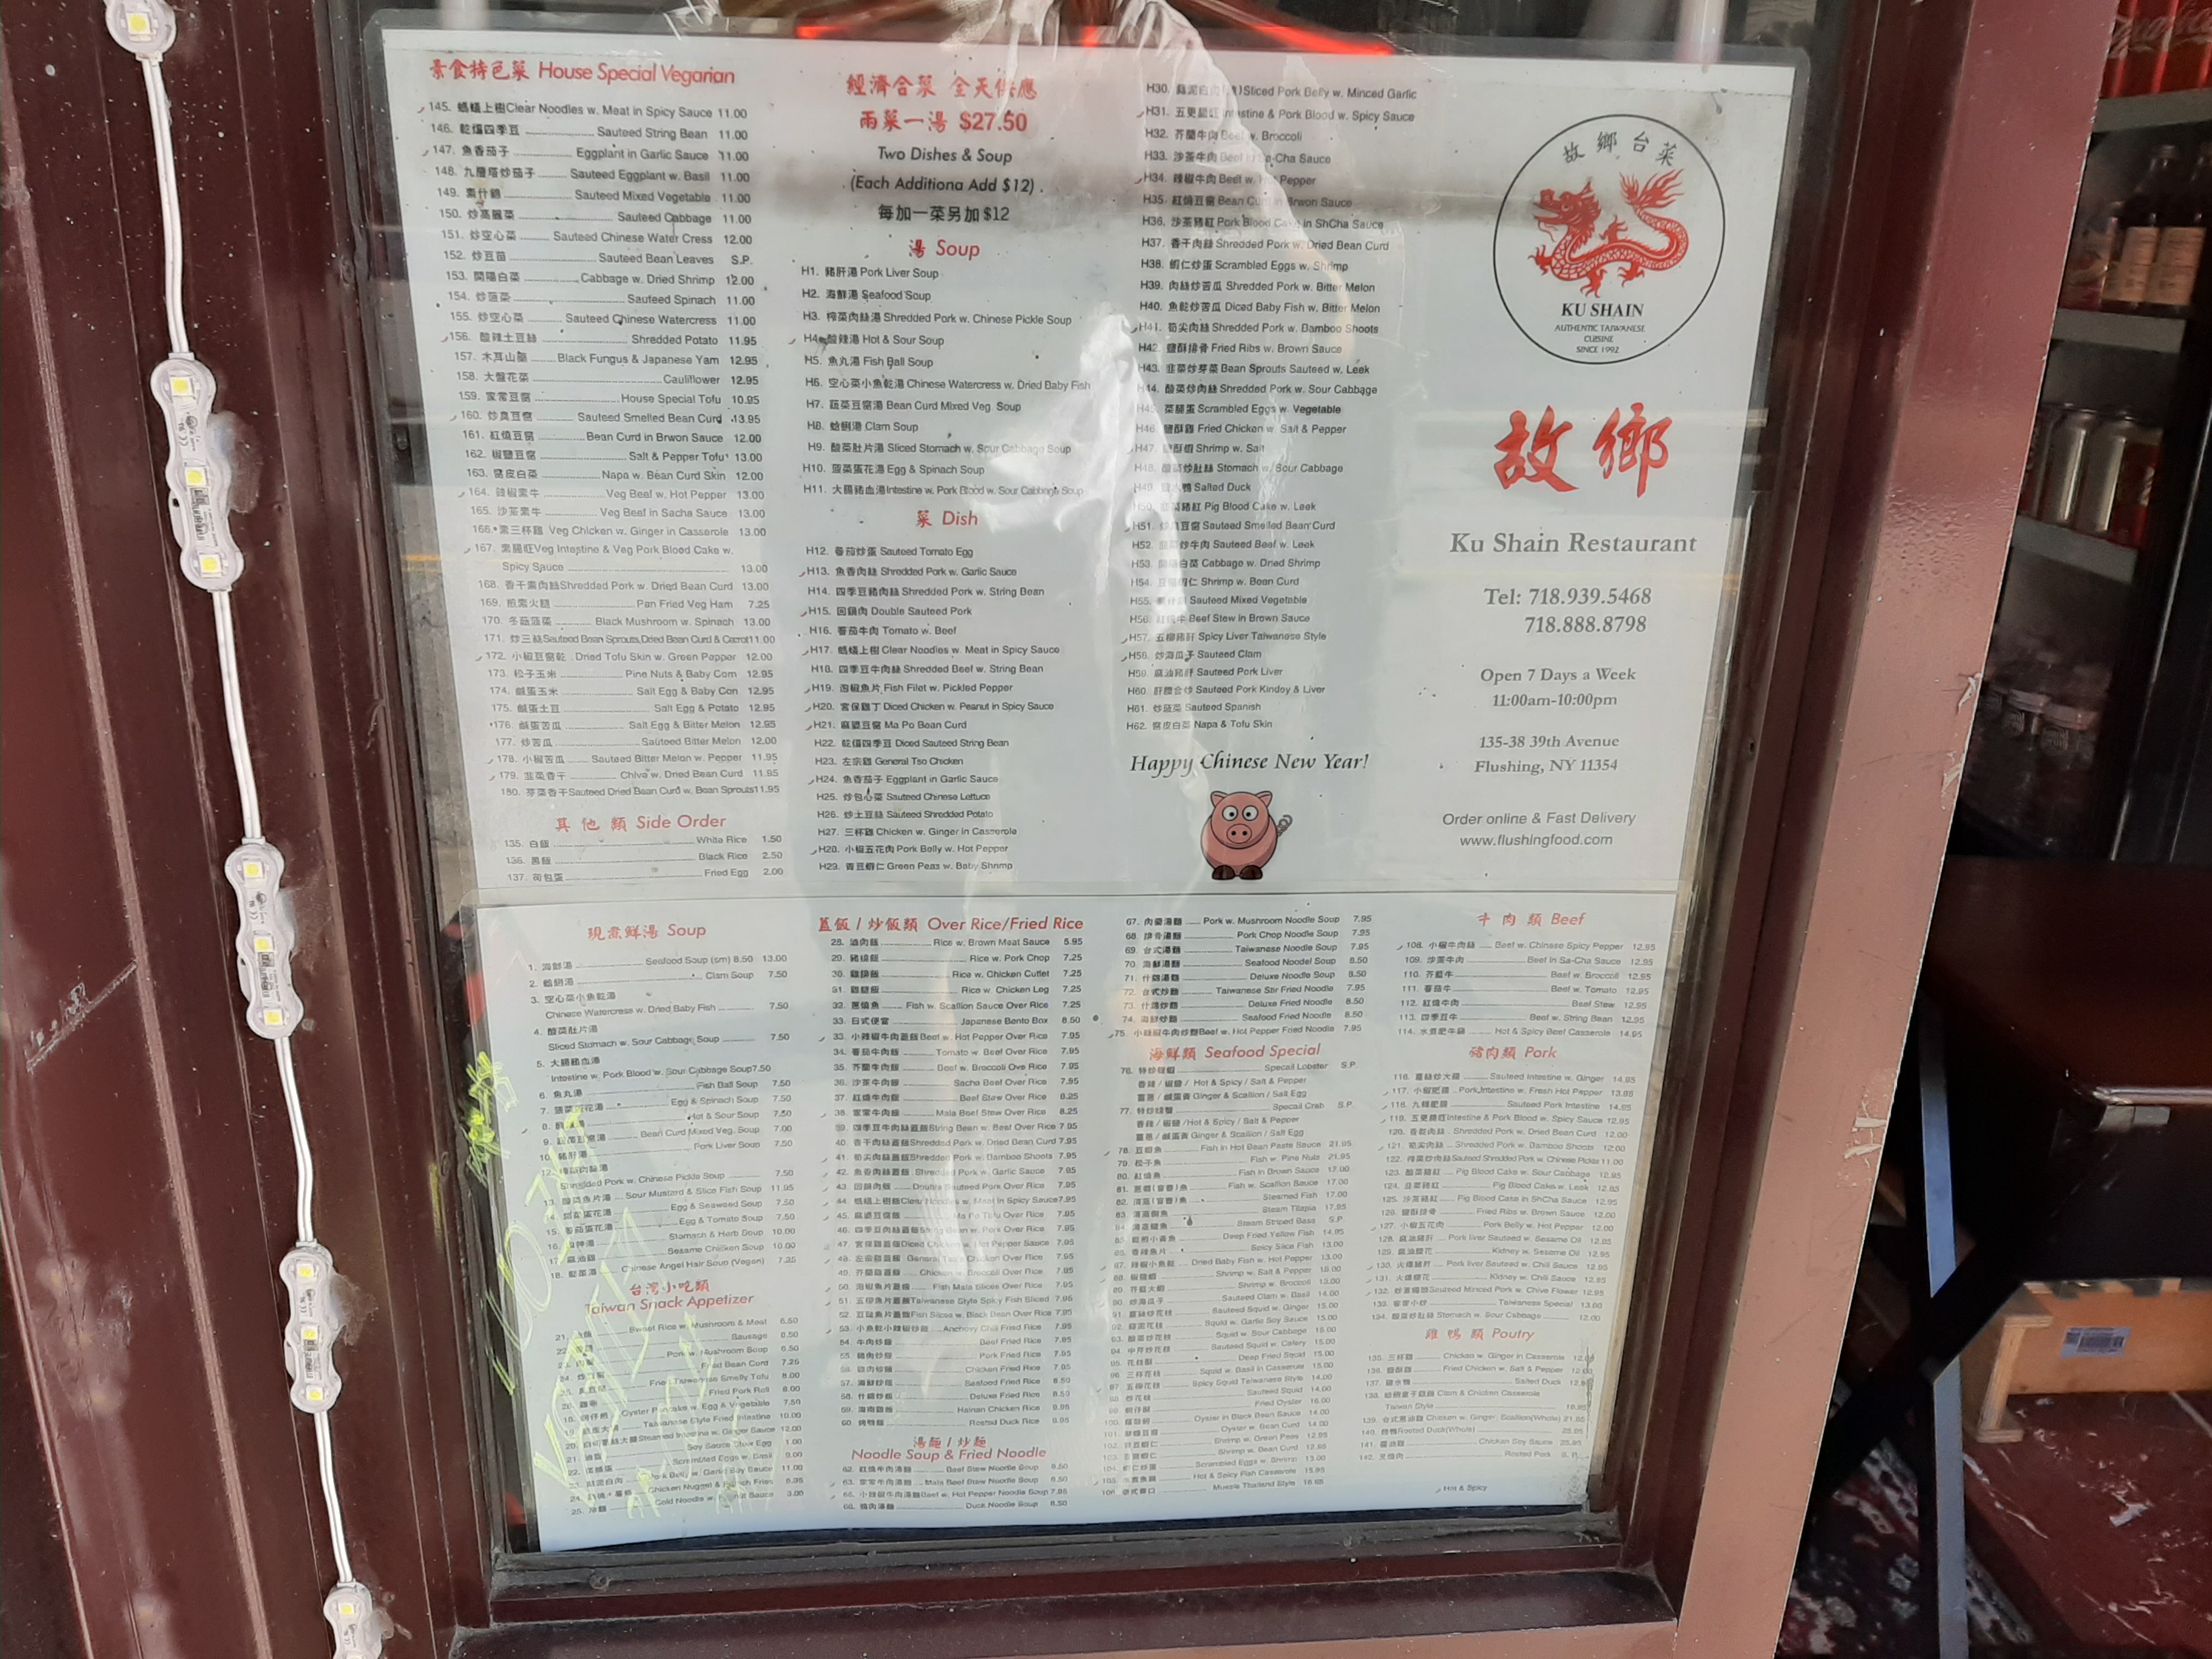 素食特色菜 House Special Vegarian
145. 螞蟻上樹Clear Noodles w. Meat in Spicy Sauce 11.00
146. 乾煸四季豆 Sauteed String Bean 11.00
147. 魚香茄子 Eggplant in Garlic Sauce 11.00
148. 九層塔炒茄子 Sauteed Eggplant w. Basil 11.00
149. 素什錦 Sauteed Mixed Vegetable 11.00
150. 炒高麗菜 Sauteed Cabbage 11.00
151. 炒空心菜 Sauteed Chinese Water Cress 12.00
152. 炒豆苗 Sauteed Bean Leaves S.P.
153. 開陽白菜 Cabbage w. Dried Shrimp 12.00
154. 炒菠菜 Sauteed Spinach 11.00
155. 炒空心菜 Sauteed Chinese Watercress 11.00
156. 酸辣土豆絲 Shredded Potato 11.95
157. 木耳山藥 Black Fungus & Japanese Yam 12.95
158. 大盤花菜 Cauliflower 12.95
159. 家常豆腐 House Special Tofu 10.95
160. 炒臭豆腐 Sauteed Smelled Bean Curd 13.95
161. 紅燒豆腐 Bean Curd in Brwon Sauce 12.00
162. 椒鹽豆腐 Salt & Pepper Tofu 13.00
163. 腐皮白菜 Napa w. Bean Curd Skin 12.00
164. 辣椒素牛 Veg Beef w. Hot Pepper 13.00
165. 沙茶素牛 Veg Beef in Sacha Sauce 13.00
166. 素三杯雞 Veg Chicken w. Ginger in Casserole 13.00
167. 素腸旺Veg Intestine & Veg Pork Blood Cake w.
Spicy Sauce 13.00
168. 香干素肉絲Shredded Pork w. Dried Bean Curd 13.00
169. 煎素火腿 Pan Fried Veg Ham 7.25
170. 冬菇菠菜 Black Mushroom w. Spinach 13.00
171. 炒三絲Sauteed Bean Sprouts,Dried Bean Curd & Carrot11.00
172. 小椒豆腐乾 Dried Tofu Skin w. Green Pepper 12.00
173. 松子玉米 Pine Nuts & Baby Corn 12.95
174. 鹹蛋玉米 Salt Egg & Baby Con 12.95
175. 鹹蛋土豆 Salt Egg & Potato 12.95
176. 鹹蛋苦瓜 Salt Egg & Bitter Melon 12.95
177. 炒苦瓜 Sauteed Bitter Melon 12.00
178. 小椒苦瓜 Sauteed Bitter Melon w. Pepper 11.95
179. 韭菜香干 Chive w. Dried Bean Curd 11.95
180. 芽菜香干Sauteed Dried Bean Curd w. Bean Sprouts11.95
其他類 Side Order
135. 白飯 White Rice 1.50
136. 黑飯 Black Rice 2.50
137. 荷包蛋 Fried Egg 2.00
經濟合菜 全天供應
兩菜一湯 $27.50
Two Dishes & Soup
(Each Additiona Add $12)
每加一菜另加 $12
湯 Soup
H1. 豬肝湯 Pork Liver Soup
H2. 海鮮湯 Seafood Soup
H3. 榨菜肉絲湯 Shredded Pork w. Chinese Pickle Soup
H4. 酸辣湯 Hot & Sour Soup
H5. 魚丸湯 Fish Ball Soup
H6. 空心菜小魚乾湯 Chinese Watercress w. Dried Baby Fish
H7. 蔬菜豆腐湯 Bean Curd Mixed Veg. Soup
H8. 蛤蜊湯 Clam Soup
H9. 酸菜肚片湯 Sliced Stomach w. Sour Cabbage Soup
H10. 菠菜蛋花湯 Egg & Spinach Soup
H11. 大腸豬血湯Intestine w. Pork Blood w. Sour Cabbage Soup
菜 Dish
H12. 番茄炒蛋 Sauteed Tomato Egg
H13. 魚香肉絲 Shredded Pork w. Garlic Sauce
H14. 四季豆豬肉絲 Shredded Pork w. String Bean
H15. 回鍋肉 Double Sauteed Pork
H16. 番茄牛肉 Tomato w. Beef
H17. 螞蟻上樹 Clear Noodles w. Meat in Spicy Sauce
H18. 四季豆牛肉絲 Shredded Beef w. String Bean
H19. 泡椒魚片 Fish Filet w. Pickled Pepper
H20. 宮保雞丁 Diced Chicken w. Peanut in Spicy Sauce
H21. 麻婆豆腐 Ma Po Bean Curd
H22. 乾煸四季豆 Diced Sauteed String Bean
H23. 左宗雞 General Tso Chicken
H24. 魚香茄子 Eggplant in Garlic Sauce
H25. 炒包心菜 Sauteed Chinese Lettuce
H26. 炒土豆絲 Sauteed Shredded Potato
H27. 三杯雞 Chicken w. Ginger in Casserole
H28. 小椒五花肉 Pork Belly w. Hot Pepper
H29. 青豆蝦仁 Green Peas w. Baby Shrimp
H30. Sliced Pork Belly w. Minced Garlic
H31. 五更腸旺 Intestine & Pork Blood w. Spicy Sauce
H32. 芥蘭牛肉 Beef w. Broccoli
H33. 沙茶牛肉 Beef Sa-Cha Sauce
H34. 辣椒牛肉 Beef w. Hot Pepper
H35. 紅燒豆腐 Bean Curd in Brwon Sauce
H36. 沙茶豬紅 Pork Blood Cake in ShCha Sauce
H37. 香干肉絲 Shredded Pork w. Dried Bean Curd
H38. 蝦仁炒蛋 Scrambled Eggs w. Shrimp
H39. 肉絲炒苦瓜 Shredded Pork w. Bitter Melon
H40. 魚乾炒苦瓜 Diced Baby Fish w. Bitter Melon
H41. 筍尖肉絲 Shredded Pork w. Bamboo Shoots
H42. 鹽酥排骨 Fried Ribs w. Brown Sauce
H43. 韭菜炒芽菜 Bean Sprouts Sauteed w. Leek
H44. 酸菜炒肉絲 Shredded Pork w. Sour Cabbage
H45. 菜脯蛋 Scrambled Eggs w. Vegetable
H46. 鹽酥雞 Fried Chicken w. Salt & Pepper
H47. 鹽酥蝦 Shrimp w. Salt
H48. 酸菜炒肚絲 Stomach w. Sour Cabbage
H49. 鹽水鴨 Salted Duck
H50. 韭菜豬紅 Pig Blood Cake w. Leek
H51. 炒臭豆腐 Sauteed Smelled Bean Curd
H52. 韭菜炒牛肉 Sauteed Beef w. Leek
H53. 開陽白菜 Cabbage w. Dried Shrimp
H54. 豆腐蝦仁 Shrimp w. Bean Curd
H55. 素什錦 Sauteed Mixed Vegetable
H56. 紅燒牛 Beef Stew in Brown Sauce
H57. 五柳豬肝 Spicy Liver Taiwanese Style
H58. 炒海瓜子 Sauteed Clam
H59. 麻油豬肝 Sauteed Pork Liver
H60. 肝腰合炒 Sauteed Pork Kindey & Liver
H61. 炒菠菜 Sauteed Spanish
H62. 腐皮白菜 Napa & Tofu Skin
Happy Chinese New Year!
故鄉台菜
KU SHAIN
AUTHENTIC TAIWANESE
CUISINE
SINCE 1992
故鄉
Ku Shain Restaurant
Tel: 718.939.5468
718.888.8798
Open 7 Days a Week
11:00am-10:00pm
135-38 39th Avenue
Flushing, NY 11354
Order online & Fast Delivery
www.flushingfood.com
現煮鮮湯 Soup
1. 海鮮湯 Seafood Soup (sm) 8.50 13.00
2. 蛤蜊湯 Clam Soup 7.50
3. 空心菜小魚乾湯
Chinese Watercress w. Dried Baby Fish 7.50
4. 酸菜肚片湯
Sliced Stomach w. Sour Cabbage Soup 7.50
5. 大腸豬血湯
Intestine w. Pork Blood w. Sour Cabbage Soup7.50
6. 魚丸湯 Fish Ball Soup 7.50
7. 菠菜蛋花湯 Egg & Spinach Soup 7.50
8. Hot & Sour Soup 7.50
9. Bean Curd Mixed Veg. Soup 7.00
10. 豬肝湯 Pork Liver Soup 7.50
12. 榨菜肉絲湯
Shredded Pork w. Chinese Pickle Soup 7.50
13. 酸菜魚片湯 Sour Mustard & Slice Fish Soup 11.95
14. Egg & Seaweed Soup 7.50
15. 番茄蛋花湯 Egg & Tomato Soup 7.50
16. Stomach & Herb Soup 10.00
17. 麻油雞 Sesame Chicken Soup 10.00
18. Chinese Angel Hair Soup (Vegan) 7.25
台灣小吃類
Taiwan Snack Appetizer
Sweet Rice w. Mushroom & Meat 6.50
Sausage
Pork w. Mushroom Soup 6.50
Fried Bean Cord 7.25
Fried Taiwanese Smelly Tofu 8.00
Fried Pork Roll 8.00
Oyster Pancake w. Egg & Vegetable 7.50
Taiwanese Style Fried Intestine 10.00
Steamed Intestine w. Ginger Sauce 12.00
Soy Sauce Egg 1.00
Scrambled Eggs w. Basil
Pork Belly w. Garlic Soy Sauce 11.00
Chicken Nugget & French Fries
蓋飯 / 炒飯類 Over Rice/Fried Rice
28. 滷肉飯 Rice w. Brown Meat Sauce 5.95
29. 豬排飯 Rice w. Pork Chop 7.25
30. 雞排飯 Rice w. Chicken Cutlet 7.25
31. 雞腿飯 Rice w. Chicken Leg 7.25
32. 蔥燒魚 Fish w. Scallion Sauce Over Rice 7.25
33. 日式便當 Japanese Bento Box 8.50
33. 小辣椒牛肉蓋飯Beef w. Hot Pepper Over Rice 7.95
34. 番茄牛肉飯 Tomato w. Beef Over Rice 7.95
35. 芥蘭牛肉飯 Beef w. Broccoli Ove Rice 7.95
36. 沙茶牛肉飯 Sacha Beef Over Rice 7.95
37. 紅燒牛肉飯 Beef Stew Over Rice 8.25
38. 家常牛肉飯 Mala Beef Stew Over Rice 8.25
39. 四季豆牛肉絲蓋飯String Bean w. Beef Over Rice 7.95
40. 香干肉絲蓋飯Shredded Pork w. Dried Bean Curd 7.95
41. 筍尖肉絲蓋飯Shredded Pork w. Bamboo Shoots 7.95
42. 魚香肉絲蓋飯 Shredded Pork w. Garlic Sauce 7.95
43. 回鍋肉飯 Double Sauteed Pork Over Rice 7.95
44. 螞蟻上樹飯Clear Noodles w. Meat in Spicy Sauce7.95
45. 麻婆豆腐飯 Ma Po Tofu Over Rice 7.95
46. 四季豆肉絲蓋飯String Bean w. Pork Over Rice 7.95
47. 宮保雞丁蓋飯Diced Chicken w. Hot Pepper Sauce 7.95
48. 左宗雞蓋飯 General Tso's Chicken Over Rice 7.95
49. 芥蘭雞蓋飯 Chicken w. Broccoli Over Rice 7.95
50. 泡椒魚片蓋飯 Fish Mala Slices Over Rice 7.95
51. 五柳魚片蓋飯Taiwanese Style Spicy Fish Sliced 7.95
52. 豆豉魚片蓋飯Fish Slices w. Black Bean Over Rice 7.95
53. 小魚乾小辣椒炒飯 Anchovy Chili Fried Rice 7.95
54. 牛肉炒飯 Beef Fried Rice 7.95
55. 豬肉炒飯 Pork Fried Rice 7.95
56. 雞肉炒飯 Chicken Fried Rice 7.95
57. 海鮮炒飯 Seafood Fried Rice 8.50
58. 什錦炒飯 Deluxe Fried Rice 8.50
59. 海南雞飯 Hainan Chicken Rice
60. 烤鴨飯 Rosted Duck Rice
湯麵 / 炒麵
Noodle Soup & Fried Noodle
62. 紅燒牛肉湯麵 Beef Stew Noodle Soup 8.50
63. 家常牛肉湯麵 Mala Beef Stew Noodle Soup 8.50
65. 小辣椒牛肉湯麵Beef w. Hot Pepper Noodle Soup 7.95
66. 鴨肉湯麵 Duck Noodle Soup 8.50
67. 肉羹湯麵 Pork w. Mushroom Noodle Soup 7.95
68. 排骨湯麵 Pork Chop Noodle Soup 7.95
69. 台式湯麵 Taiwanese Noodle Soup 7.95
70. 海鮮湯麵 Seafood Noodel Soup 8.50
71. 什錦湯麵 Deluxe Noodle Soup 8.50
72. 台式炒麵 Taiwanese Stir Fried Noodle 7.95
73. 什錦炒麵 Deluxe Fried Noodle 8.50
74. 海鮮炒麵 Seafood Fried Noodle 8.50
75. 小辣椒牛肉炒麵Beef w. Hot Pepper Fried Noodle 7.95
海鮮類 Seafood Special
76. 特炒龍蝦 Specail Lobster S.P.
香辣 / 椒鹽 / Hot & Spicy / Salt & Pepper
薑蔥 / 鹹蛋黃 Ginger & Scallion / Salt Egg
77. 特炒螃蟹 Specail Crab S.P.
香辣 / 椒鹽 /Hot & Spicy / Salt & Pepper
薑蔥 / 鹹蛋黃 Ginger & Scallion / Salt Egg
78. 豆瓣魚 Fish in Hot Bean Paste Sauce 21.95
79. 松子魚 Fish w. Pine Nuts 21.95
80. 紅燒魚 Fish in Brown Sauce 17.00
81. Fish w. Scallion Sauce 17.00
82. Steamed Fish 17.00
83. Steam Tilapia 17.95
84. Steam Striped Bass S.P.
85. Deep Fried Yellow Fish 14.95
86. 香辣魚片 Spicy Slice Fish 13.00
87. 辣椒小魚乾 Dried Baby Fish w. Hot Pepper 13.00
88. 椒鹽蝦 Shrimp w. Salt & Pepper 18.00
89. 芥蘭大蝦 Shrimp w. Broccoli 13.00
90. 炒海瓜子 Sauteed Clam w. Basil 14.00
91. Sauteed Squid w. Ginger 15.00
92. Squid w. Garlic Soy Sauce 15.00
93. 酸菜炒花枝 Squid w. Sour Cabbage 15.00
94. 中芹炒花枝 Sauteed Squid w. Celery 15.00
95. 花枝酥 Deep Fried Squid 15.00
96. 三杯花枝 Squid w. Basil in Casserole 15.00
97. 五柳花枝 Spicy Squid Taiwanese Style 14.00
98. 炒花枝 Sauteed Squid 14.00
99. Fried Oyster 16.00
100. Oyster in Black Bean Sauce 14.00
Oyster w. Bean Curd 14.00
Shrimp w. Green Peas 12.95
Shrimp w. Bean Curd 12.95
Scrambled Eggs w. Shrimp 13.00
105. Hot & Spicy Fish Casserole 15.95
106. Mussle Thailand Style
牛肉類 Beef
108. 小椒牛肉絲 Beef w. Chinese Spicy Pepper 12.95
109. 沙茶牛肉 Beef in Sa-Cha Sauce 12.95
110. 芥藍牛 Beef w. Broccoli 12.95
111. 番茄牛 Beef w. Tomato 12.95
112. 紅燒牛肉 Beef Stew 12.95
113. 四季豆牛 Beef w. String Bean 12.95
114. 水煮肥牛鍋 Hot & Spicy Beef Casserole 14.95
豬肉類 Pork
116. 薑絲炒大腸 Sauteed Intestine w. Ginger 14.95
117. 小椒肥腸 Pork Intestine w. Fresh Hot Pepper 13.95
118. 九轉肥腸 Sauteed Pork Intestine 14.95
119. 五更腸旺Intestine & Pork Blood w. Spicy Sauce 12.95
120. 香乾肉絲 Shredded Pork w. Dried Bean Curd 12.00
121. 筍尖肉絲 Shredded Pork w. Bamboo Shoots 12.00
122. 榨菜炒肉絲Sauteed Shredded Pork w. Chinese Pickle11.00
123. 酸菜豬紅 Pig Blood Cake w. Sour Cabbage 12.95
124. 韭菜豬紅 Pig Blood Cake w. Leek 12.95
125. 沙茶豬紅 Pig Blood Cake in ShCha Sauce 12.95
126. 鹽酥排骨 Fried Ribs w. Brown Sauce 12.00
127. 小椒五花肉 Pork Belly w. Hot Pepper 12.00
128. 麻油豬肝 Pork liver Sauteed w. Sesame Oil 12.95
129. 麻油腰花 Kidney w. Sesame Oil 12.95
130. 火爆豬肝 Pork liver Sauteed w. Chili Sauce 12.95
131. 火爆腰花 Kidney w. Chili Sauce 12.95
132. Sauteed Minced Pork w. Chive Flower 12.95
133. 客家小炒 Taiwanese Special 13.00
134. 酸菜炒肚絲 Stomach w. Sour Cabbage 12.00
雞鴨類 Poutry
135. 三杯雞 Chicken w. Ginger in Casserole
136. 鹽酥雞 Fried Chicken w. Salt & Pepper
137. 鹽水鴨 Salted Duck
138. Clam & Chicken Casserole
Taiwan Style
139. 台式蔥油雞 Chicken w. Ginger, Scallion(Whole)
140. Rosted Duck(Whole)
141. Chicken Soy Sauce
142. 叉燒肉 Rosted Pork S.P.
Hot & Spicy